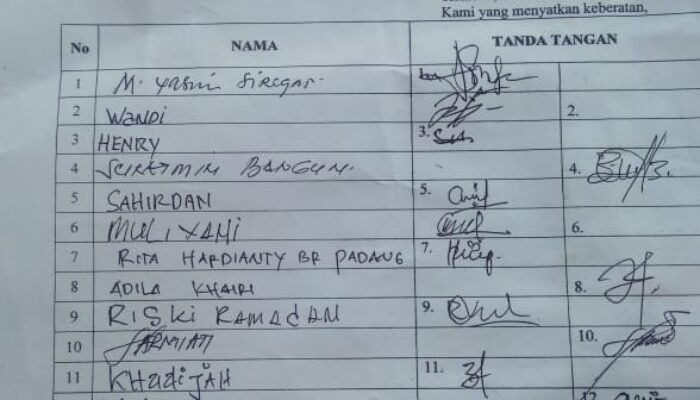 Kami yang menyatkan keberatan,
No NAMA TANDA TANGAN
1 M. Yasin Siregar.
2 WANDI 2.
3 HENRY 3.
4 BANGUN. 4.
5 SAHIRDAN 5.
6 MULIYAMI 6.
7 RITA HARDIANTY BR PADANG 7.
8 ADILA KHAIRI 8.
9 RISKI RAMADAN 9.
10 SARMIATI 10.
11 KHADIJAH 11.
12